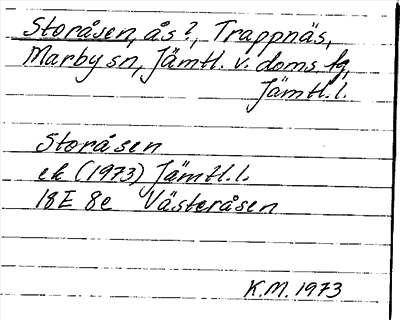 Storåsen, ås?, Trappnäs,
Marby sn, Jämtl. v. doms. fg,
Jämtl. l.
Storåsen
ek (1973) Jämtl. l.
18E 8e Västeråsen
K.M. 1973